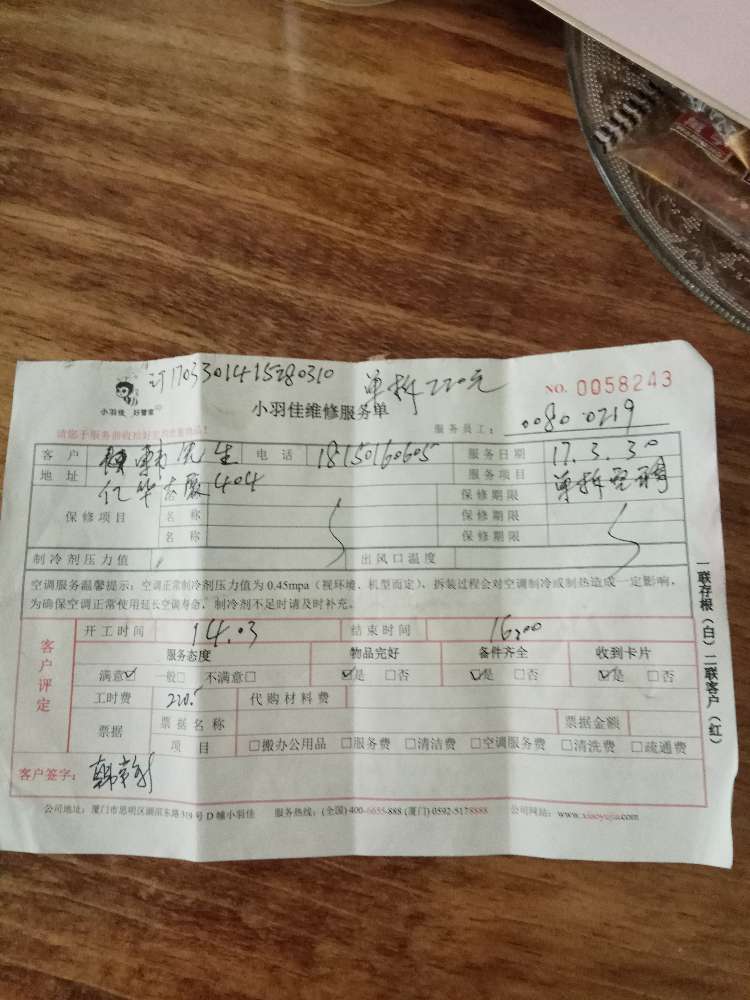 1703301415280310 单拆220元
小羽佳 好管家
小羽佳维修服务单
NO. 0058243
请您于服务前收拾好贵重物品!
服务员工: 0080 0219
客户 先生 电话 18150160605 服务日期 17.3.30
地址 404 服务项目 单拆
保修项目 名称 保修期限
名称 保修期限
名称 保修期限
制冷剂压力值 出风口温度
空调服务温馨提示:空调正常制冷剂压力值为 0.45mpa(视环境、机型而定),拆装过程会对空调制冷或制热造成一定影响,
为确保空调正常使用延长空调寿命,制冷剂不足时请及时补充。
客户评定
开工时间 14.03 结束时间 16:00
服务态度 物品完好 备件齐全 收到卡片
满意☑ 一般□ 不满意□ ☑是 □否 ☑是 □否 ☑是 □否
工时费 220.5 代购材料费
票据 票据名称 票据金额
项目 □搬办公用品 □服务费 □清洁费 □空调服务费 □清洗费 □疏通费
客户签字:
公司地址:厦门市思明区湖滨东路319号D幢小羽佳 服务热线:(全国)400-6655-888 (厦门) 0592-5178888 公司网站:www.xiaoyujia.com
一联存根(白)二联客户(红)